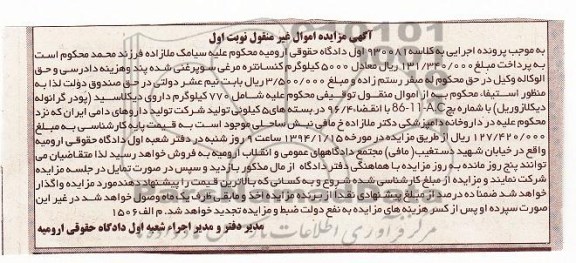 آگهی مزایده اموال غیر منقول نوبت اول
به موجب پرونده اجرایی به کلاسه ۹۳۰۰۸۱ اول دادگاه حقوقی ارومیه محکوم علیه سیامک ملازاده فرزند محمد محکوم است
به پرداخت مبلغ ۱۳۱/۳۴۰/۰۰۰ ریال معادل ۵۰۰۰ کیلوگرم کنسانتره مرغی سوپرغنی شده بند وهزینه دادرسی و حق
الوکاله وکیل در حق محکوم له صفر رستم زاده و مبلغ ۳/۵۰۰/۰۰۰ ریال بابت نیم عشر دولتی در حق صندوق دولت لذا به
منظور استیفاء محکوم به از اموال منقول توقیفی محکوم علیه شامل ۷۷۰ کیلوگرم داروی دیکلاسید (پودر گرانوله
دیکلازوریل) با شماره بچ 86-11-A,C با انقضاء ۹۶/۴ در بسته های ۵ کیلونی تولید شرکت تولید داروهای دامی ایران که نزد
محکوم علیه در داروخانه دامپزشکی دکتر ملازاده خ مافی نبش ساحلی موجود است به قیمت پایه کارشناسی به مبلغ
۱۲۷/۴۲۰/۰۰۰ ریال از طریق مزایده در مورخه ۱۳۹۴/۱/۱۵ ساعت ۹ روز شنبه در دفتر شعبه اول دادگاه حقوقی ارومیه
واقع در خیابان شهید دستغیب (مافی) مجتمع دادگاههای عمومی و انقلاب ارومیه به فروش خواهد رسید لذا متقاضیان می
توانند پنج روز مانده به روز مزایده با هماهنگی دفتر دادگاه از مال مذکور بازدید و سپس در صورت تمایل در جلسه مزایده
شرکت نمایند و مزایده از مبلغ کارشناسی شده شروع و به کسانی که بالاترین قیمت را پیشنهاد دهند مورد مزایده واگذار
خواهد شد ضمناً ده درصد از مبلغ پیشنهادی نقداً از برنده مزایده اخذ و مابقی ظرف یک ماه وصول خواهد شد در غیر این
صورت سپرده او پس از کسر هزینه های مزایده به نفع دولت ضبط و مزایده تجدید خواهد شد. م الف ۱۵۰۶
مدیر دفتر و مدیر اجراء شعبه اول دادگاه حقوقی ارومیه